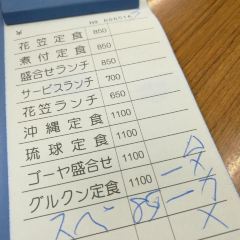 花笠定食 850
煮付定食 850
盛合せランチ 850
サービスランチ 700
花笠ランチ 650
沖縄定食 1100
琉球定食 1100
ゴーヤ盛合せ 1100
グルクン定食 1100
スペ